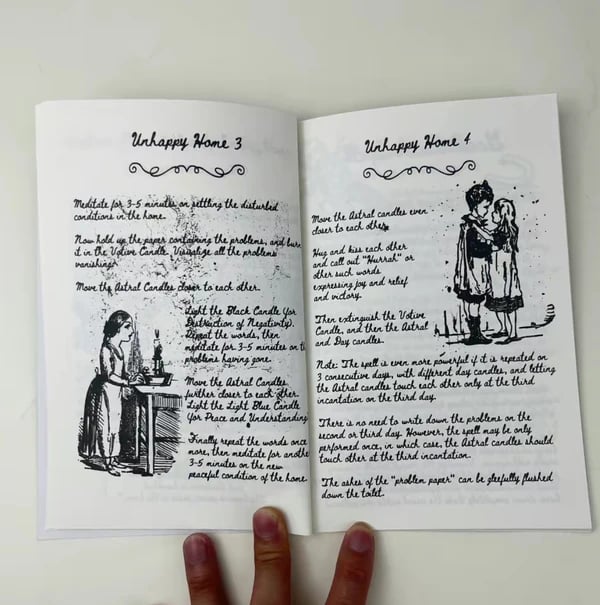 Unhappy Home 3
Meditate for 3-5 minutes on settling the disturbed
conditions in the home.
Now hold up the paper containing the problems, and burn
it in the Votive Candle. Visualize all the problems
vanishing.
Move the Astral Candles closer to each other.
Light the Black Candle (for
Destruction of Negativity).
Repeat the words, then
meditate for 3-5 minutes on the
problems having gone.
Move the Astral Candles
further closer to each other.
Light the Light Blue Candle
(for Peace and Understanding
Finally repeat the words once
more, then meditate for another
3-5 minutes on the new
peaceful condition of the home.
Unhappy Home 4
Move the Astral candles even
closer to each other.
Hug and kiss each other
and call out "Hurrah" or
other such words
expressing joy and relief
and victory.
Then extinguish the Votive
Candle, and then the Astral
and Day candles.
Note: The spell is even more powerful if it is repeated on
3 consecutive days, with different day candles, and letting
the Astral candles touch each other only at the third
incantation on the third day.
There is no need to write down the problems on the
second or third day. However, the spell may be only
performed once, in which case, the Astral candles should
touch other at the third incantation.
The ashes of the "problem paper" can be gleefully flushed
down the toilet.